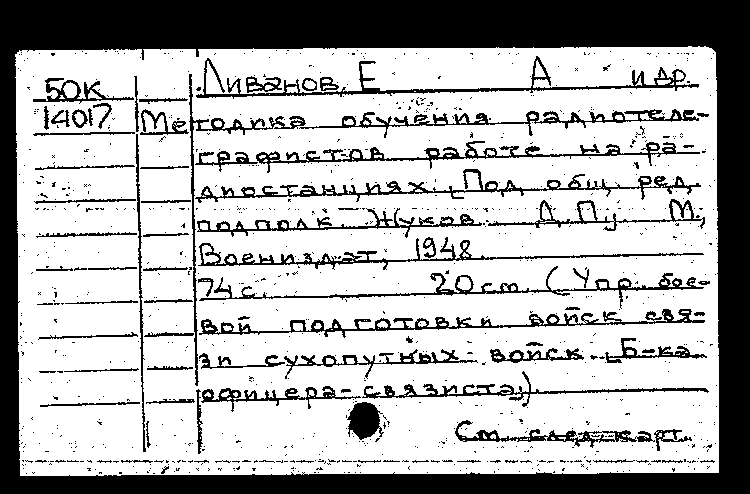 50К Ливанов, Е А и др.
14017 Методика обучения радиотеле-
графистов работе на ра-
диостанциях. [Под общ. ред.
подполк. Жуков Д. П.] М.,
Воениздат, 1948.
74 с. 20 см. (Упр. бое-
вой подготовки войск свя-
зи сухопутных войск. [Б-ка
офицера-связиста])
См. след. карт.